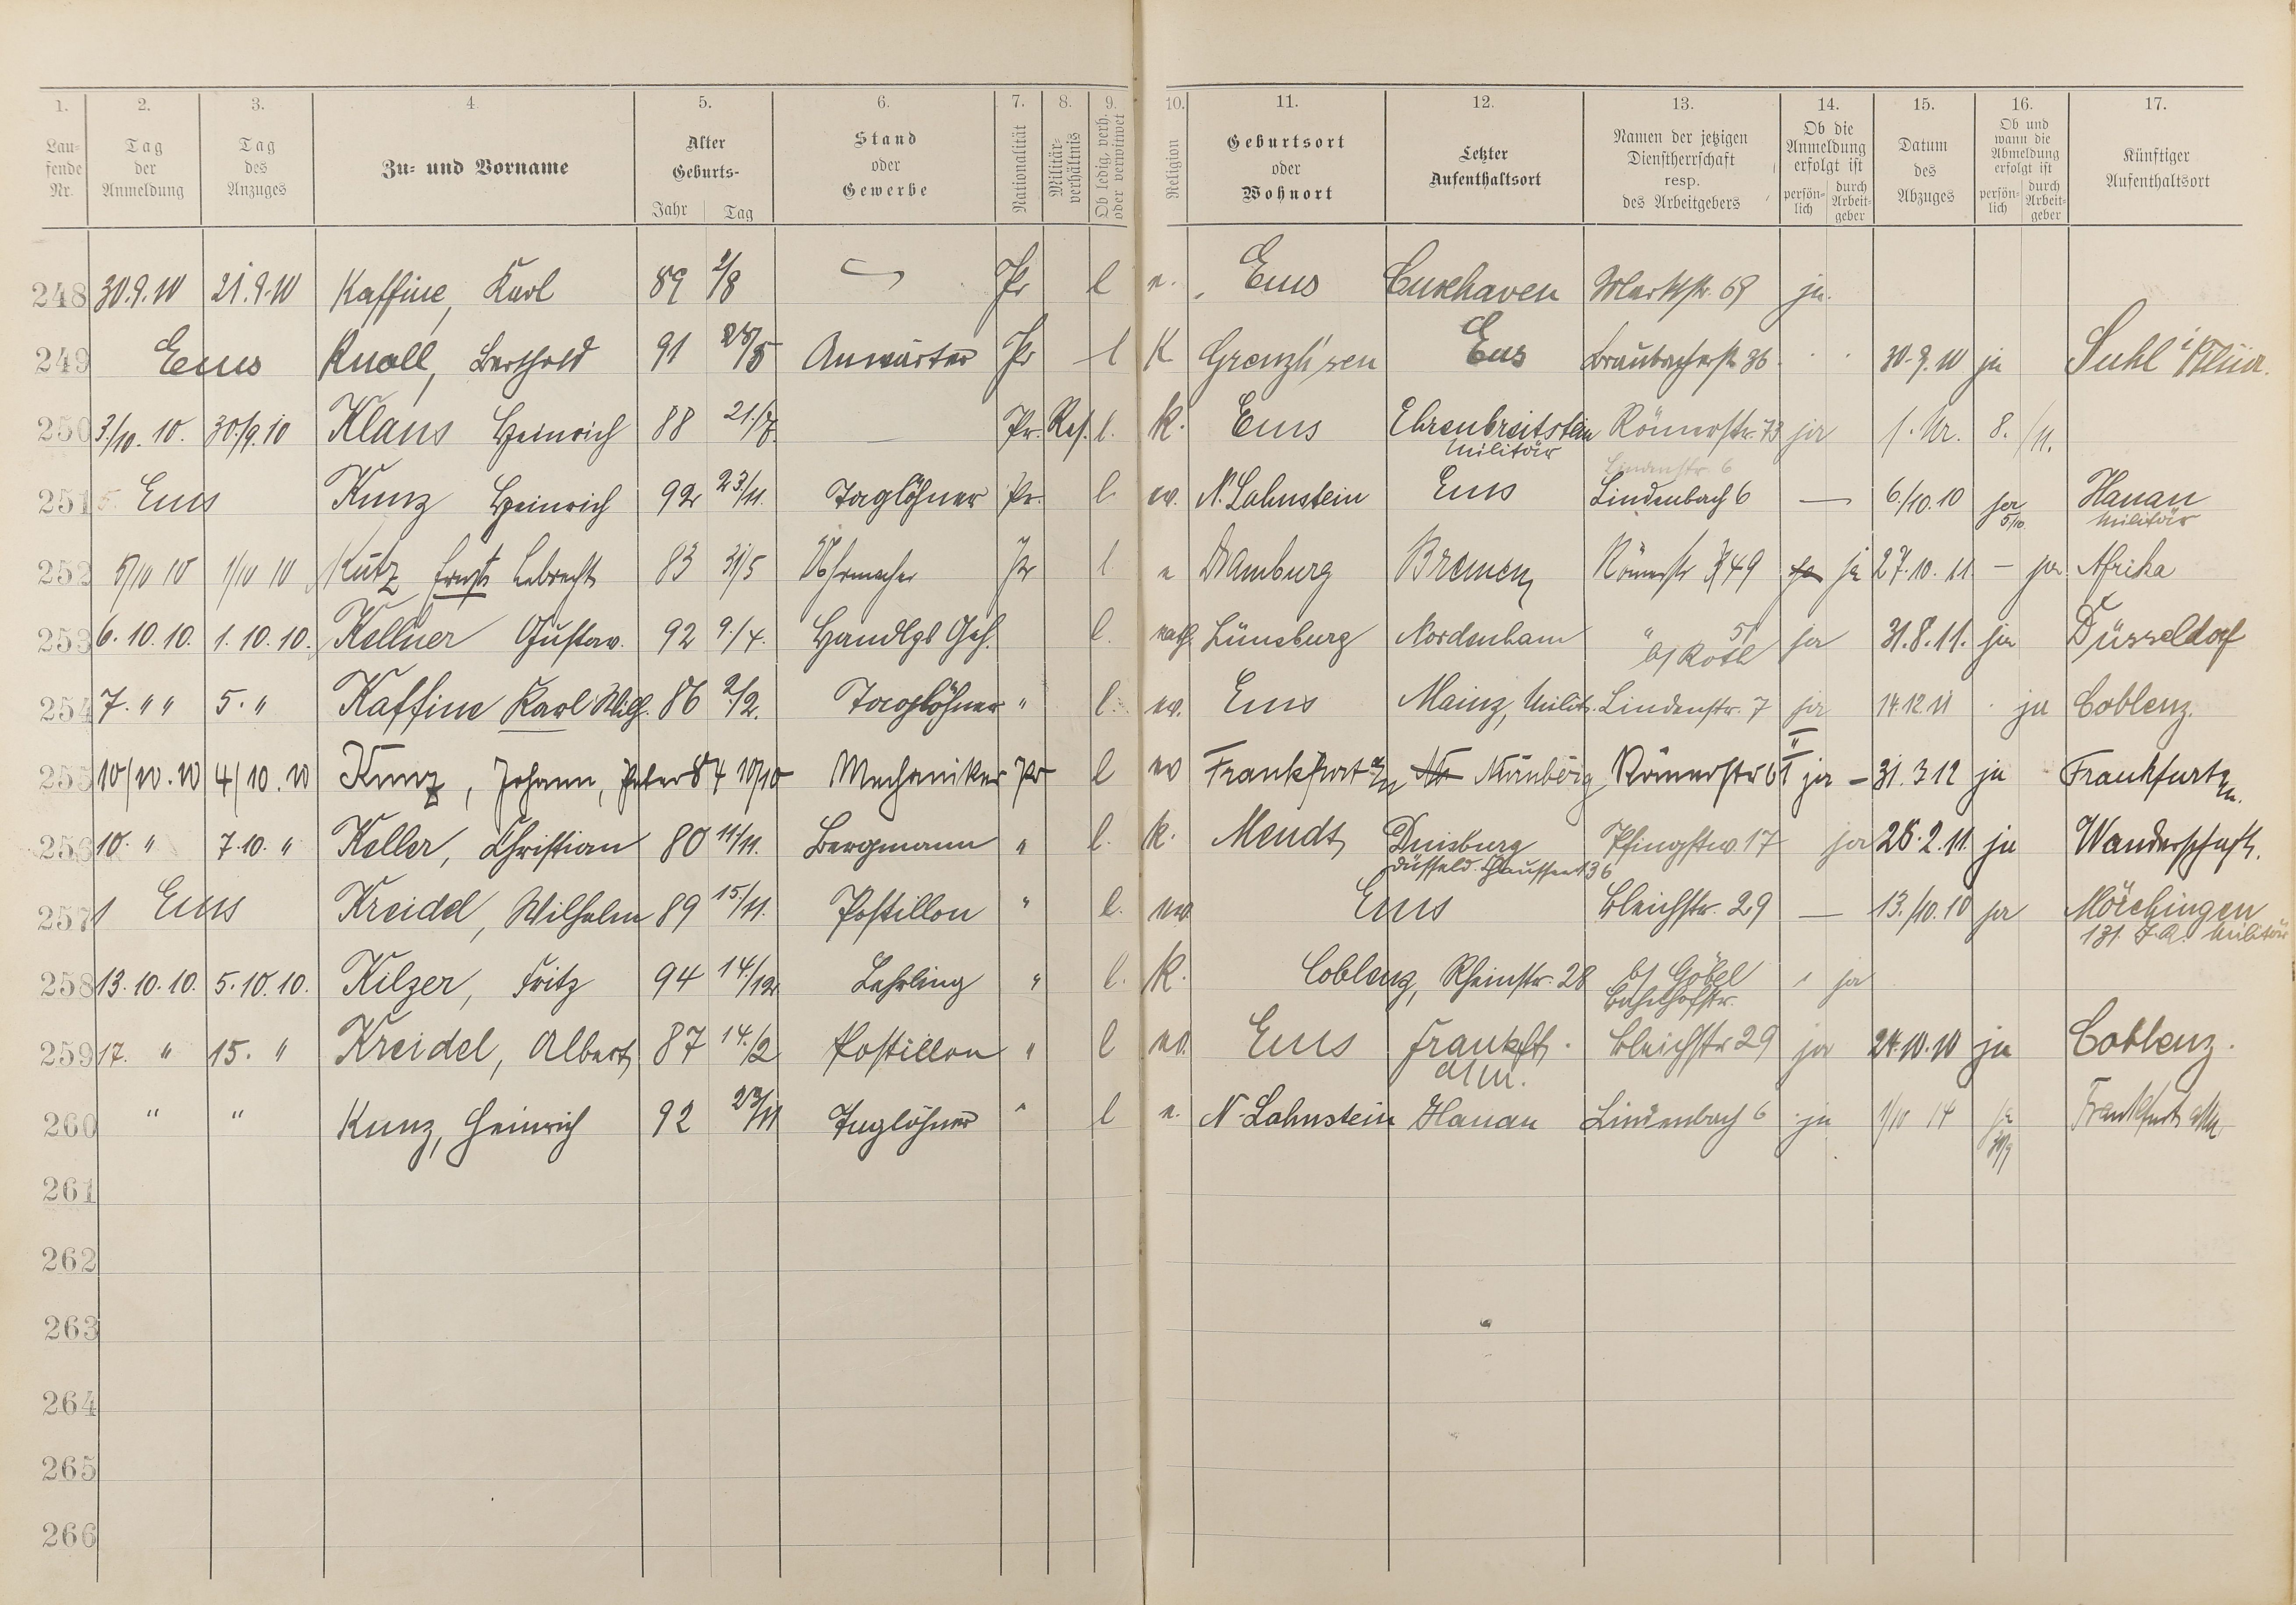 1. 2. 3. 4. 5. 6. 7. 8. 9. 10. 11. 12. 13. 14. 15. 16. 17.
Laufende Nr. Tag der Anmeldung Tag des Anzuges Zu- und Vorname Alter Geburts- Jahr Tag Stand oder Gewerbe Nationalität Militärverhältnis Ob ledig, verh. oder verwitwet Religion Geburtsort oder Wohnort Letzter Aufenthaltsort Namen der jetzigen Dienstherrschaft resp. des Arbeitgebers Ob die Anmeldung erfolgt ist persönlich durch Arbeitgeber Datum des Abzuges Ob und wann die Abmeldung erfolgt ist persönlich durch Arbeitgeber Künftiger Aufenthaltsort
248 30.9.10 21.9.10 Kaffine, Karl 89 2/8 Pr l e. Ems Cuxhaven Marktstr. 69 ja.
249 Ems Knoll, Berthold 91 Anwärter Pr l K Ems 36 30.9.10 ja Suhl
250 3./10. 10. 30./9.10 Klaus Heinrich 88 21./7. Pr. Res. l. k. Ems Ehrenbreitstein Römerstr. 73 ja 8. /11.
Militär
Lindenstr. 6
251 Ems Kunz Heinrich 92 23/11. Taglöhner Pr. l. ev. N. Lahnstein Ems Lindenbach 6 — 6./10.10 ja Hanau
5/10. Militär
252 5/10 10 1/10 10 Kutz Ernst Lebrecht 83 31/5 Uhrmacher Pr l e Dramburg Bremen Römerstr 49 ja ja 27.10.11 — ja Afrika
253 6.10.10. 1.10.10. Kellner Gustav. 92 9./4. Handlgs Geh. l. Lüneburg Nordenham " 51 ja 31.8.11. ja Düsseldorf
b/ Roth
254 7. " " 5. " Kaffine Karl Wilh. 86 2/2. Taglöhner " l. ev. Ems Mainz, Milit. Lindenstr. 7 ja 14.12.11 ja Coblenz.
255 10/10.10 4/10.10 Kunz, Johann, Peter 84 10/10 Mechaniker Pr l ev Frankfurt a/M Nürnberg Römerstr 61 II ja – 31.3.12 ja Frankfurt M.
256 10. " 7.10. " Keller, Christian 80 11./11. Bergmann " l. k. Mendt Duisburg Pfingstw 17 ja 26.2.11 ja Wanderschaft.
Düsseld. Chaussee 136
257 Ems Kreidel, Wilhelm 89 15./11. Postillon " l. ev Ems Bleichstr. 29 — 13./10.10 ja Mörchingen
131. I.R. Militär
258 13.10.10. 5.10.10. Kilzer, Fritz 94 14./12 Lehrling " l. K. Coblenz, Rheinstr. 28 b/ Göbel ja
Bahnhofstr.
259 17. " 15. " Kreidel, Albert 87 14./2 Postillon " l ev. Ems Frankft. Bleichstr 29 ja 24.10.10 ja Coblenz.
a/M.
260 " " Kunz, Heinrich 92 23/11 Taglöhner " l e. N-Lahnstein Hanau Lindenbach 6 ja 1/10 14 ja Frankfurt a/M.
30/9
261
262
263
264
265
266